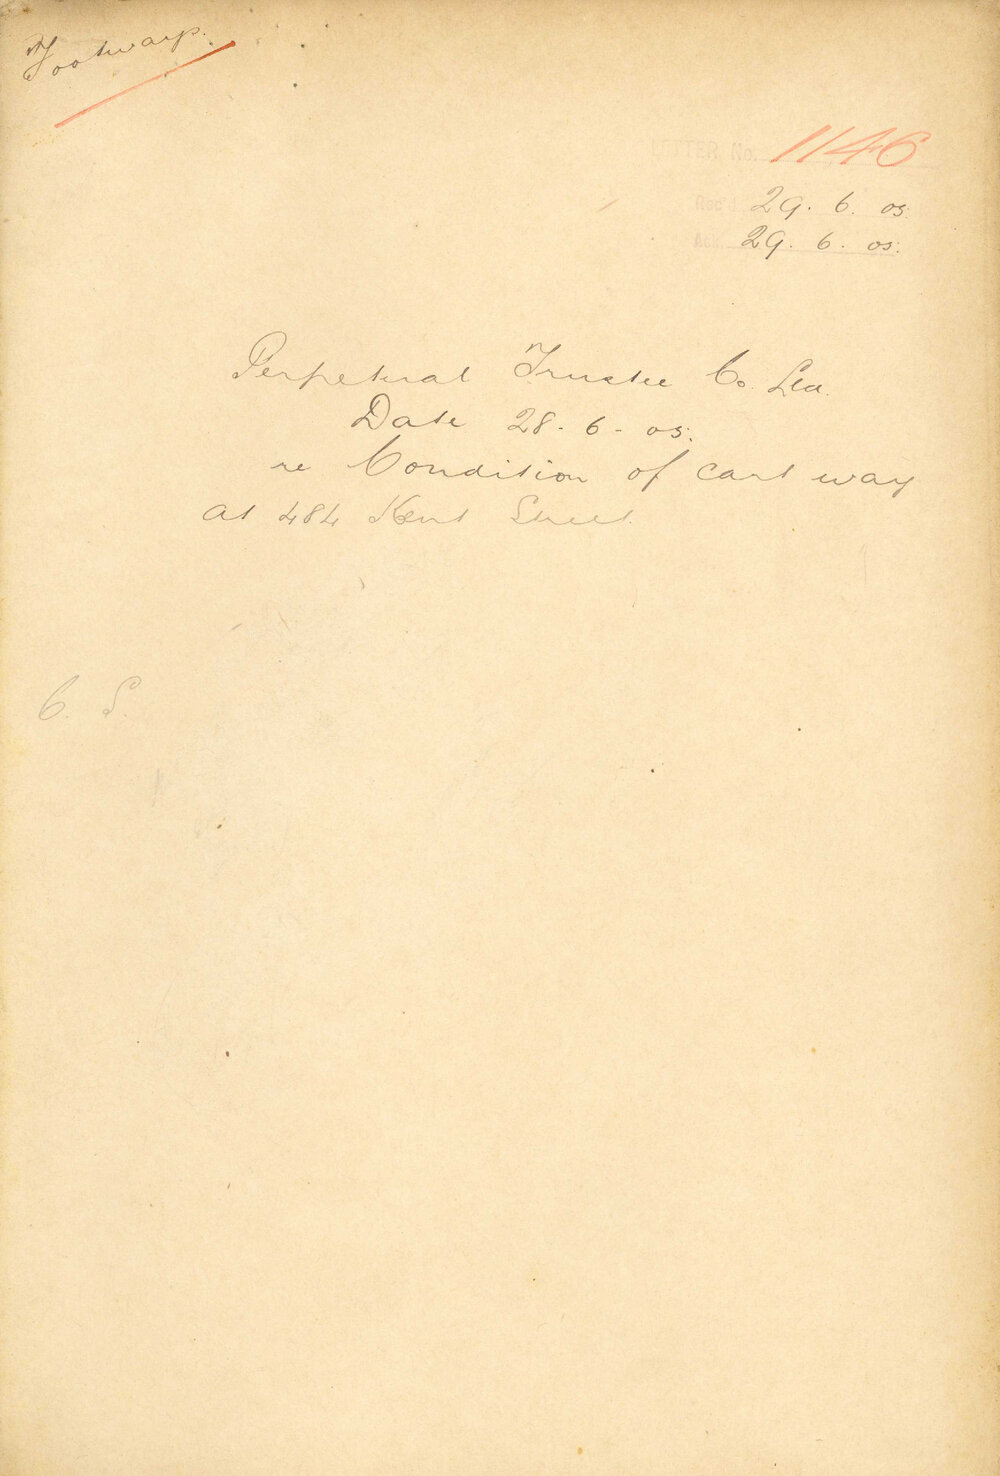 Footways.
LETTER No. 1146
Rec'd 29. 6. 05.
Ack. 29. 6. 05.
Perpetual Trustee Co. Ltd.
Date 28. 6. 05.
re Condition of cart way
at 484 Kent Street
C. S.